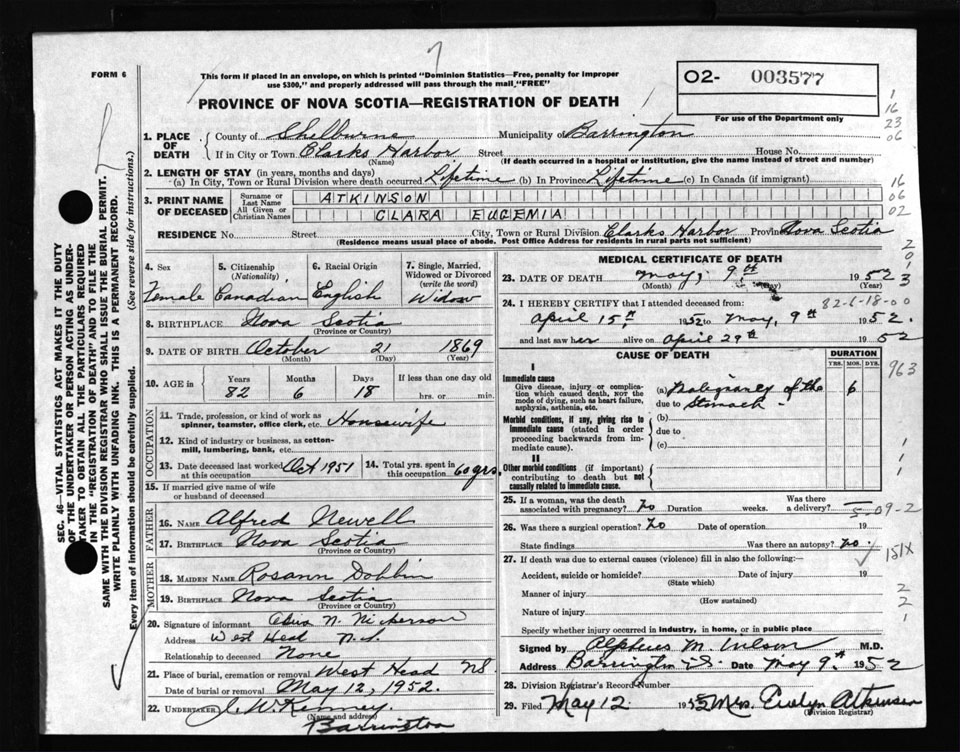 FORM 6
This form if placed in an envelope, on which is printed "Dominion Statistics—Free, penalty for improper
use $300," and properly addressed will pass through the mail "FREE"
PROVINCE OF NOVA SCOTIA—REGISTRATION OF DEATH
O2- 003577
For use of the Department only
1
16
23
06
SEC. 46—VITAL STATISTICS ACT MAKES IT THE DUTY
OF THE UNDERTAKER OR PERSON ACTING AS UNDER-
TAKER TO OBTAIN ALL THE PARTICULARS REQUIRED
IN THE "REGISTRATION OF DEATH" AND TO FILE THE
SAME WITH THE DIVISION REGISTRAR WHO SHALL ISSUE THE BURIAL PERMIT.
WRITE PLAINLY WITH UNFADING INK. THIS IS A PERMANENT RECORD.
Every item of information should be carefully supplied. (See reverse side for instructions.)
1. PLACE OF DEATH
County of Shelburne Municipality of Barrington
If in City or Town Clarks Harbor Street House No.
(Name) (If death occurred in a hospital or institution, give the name instead of street and number)
2. LENGTH OF STAY (in years, months and days)
(a) In City, Town or Rural Division where death occurred Lifetime (b) In Province Lifetime (c) In Canada (if immigrant)
3. PRINT NAME OF DECEASED
Surname or Last Name ATKINSON
All Given or Christian Names CLARA EUGENIA
16
06
02
RESIDENCE No. Street City, Town or Rural Division Clarks Harbor Province Nova Scotia
(Residence means usual place of abode. Post Office Address for residents in rural parts not sufficient)
4. Sex
Female
5. Citizenship
(Nationality)
Canadian
6. Racial Origin
English
7. Single, Married, Widowed or Divorced
(write the word)
Widow
8. BIRTHPLACE Nova Scotia
(Province or Country)
9. DATE OF BIRTH October 21 1869
(Month) (Day) (Year)
10. AGE in Years Months Days If less than one day old
82 6 18 hrs. or min.
OCCUPATION
11. Trade, profession, or kind of work as
spinner, teamster, office clerk, etc. Housewife
12. Kind of industry or business, as cotton-
mill, lumbering, bank, etc.
13. Date deceased last worked at this occupation Oct 1951
14. Total yrs. spent in this occupation 60 yrs.
15. If married give name of wife
or husband of deceased
FATHER
16. Name Alfred Newell
17. Birthplace Nova Scotia
(Province or Country)
MOTHER
18. Maiden Name Rosann Dobbin
19. Birthplace Nova Scotia
(Province or Country)
20. Signature of informant N. Nickerson
Address West Head N.S.
Relationship to deceased None
21. Place of burial, cremation or removal West Head NS.
Date of burial or removal May 12, 1952.
22. UNDERTAKER J. W. Kenney
(Name and address)
Barrington
MEDICAL CERTIFICATE OF DEATH
23. DATE OF DEATH May, 9th 1952
(Month) (Day) (Year)
2
9
3
24. I HEREBY CERTIFY that I attended deceased from:
82-6-18-00
April 15th 1952 to May, 9th 1952.
and last saw her alive on April 29th 1952
CAUSE OF DEATH
DURATION
YRS. MOS. DYS.
963
I
Immediate cause
Give disease, injury or complica-
tion which caused death, NOT the
mode of dying, such as heart failure,
asphyxia, asthenia, etc.
(a) Malignancy of the 6
due to Stomach -
Morbid conditions, if any, giving rise to
immediate cause (stated in order
proceeding backwards from im-
mediate cause).
(b)
due to
(c)
1
1
1
II
Other morbid conditions (if important)
contributing to death but not
causally related to immediate cause.
25. If a woman, was the death
associated with pregnancy? No Duration weeks. Was there a delivery?
5 09-2
26. Was there a surgical operation? No Date of operation 19
State findings Was there an autopsy? No.
27. If death was due to external causes (violence) fill in also the following:— 151X
Accident, suicide or homicide? Date of injury 19
(State which)
Manner of injury
(How sustained)
2
2
1
Nature of injury
Specify whether injury occurred in industry, in home, or in public place
Signed by Alpheus M. Wilson M.D.
Address Barrington N.S. Date May 9th 1952
28. Division Registrar's Record Number
29. Filed May 12 1952 Mrs. Evelyn Atkinson
(Division Registrar)